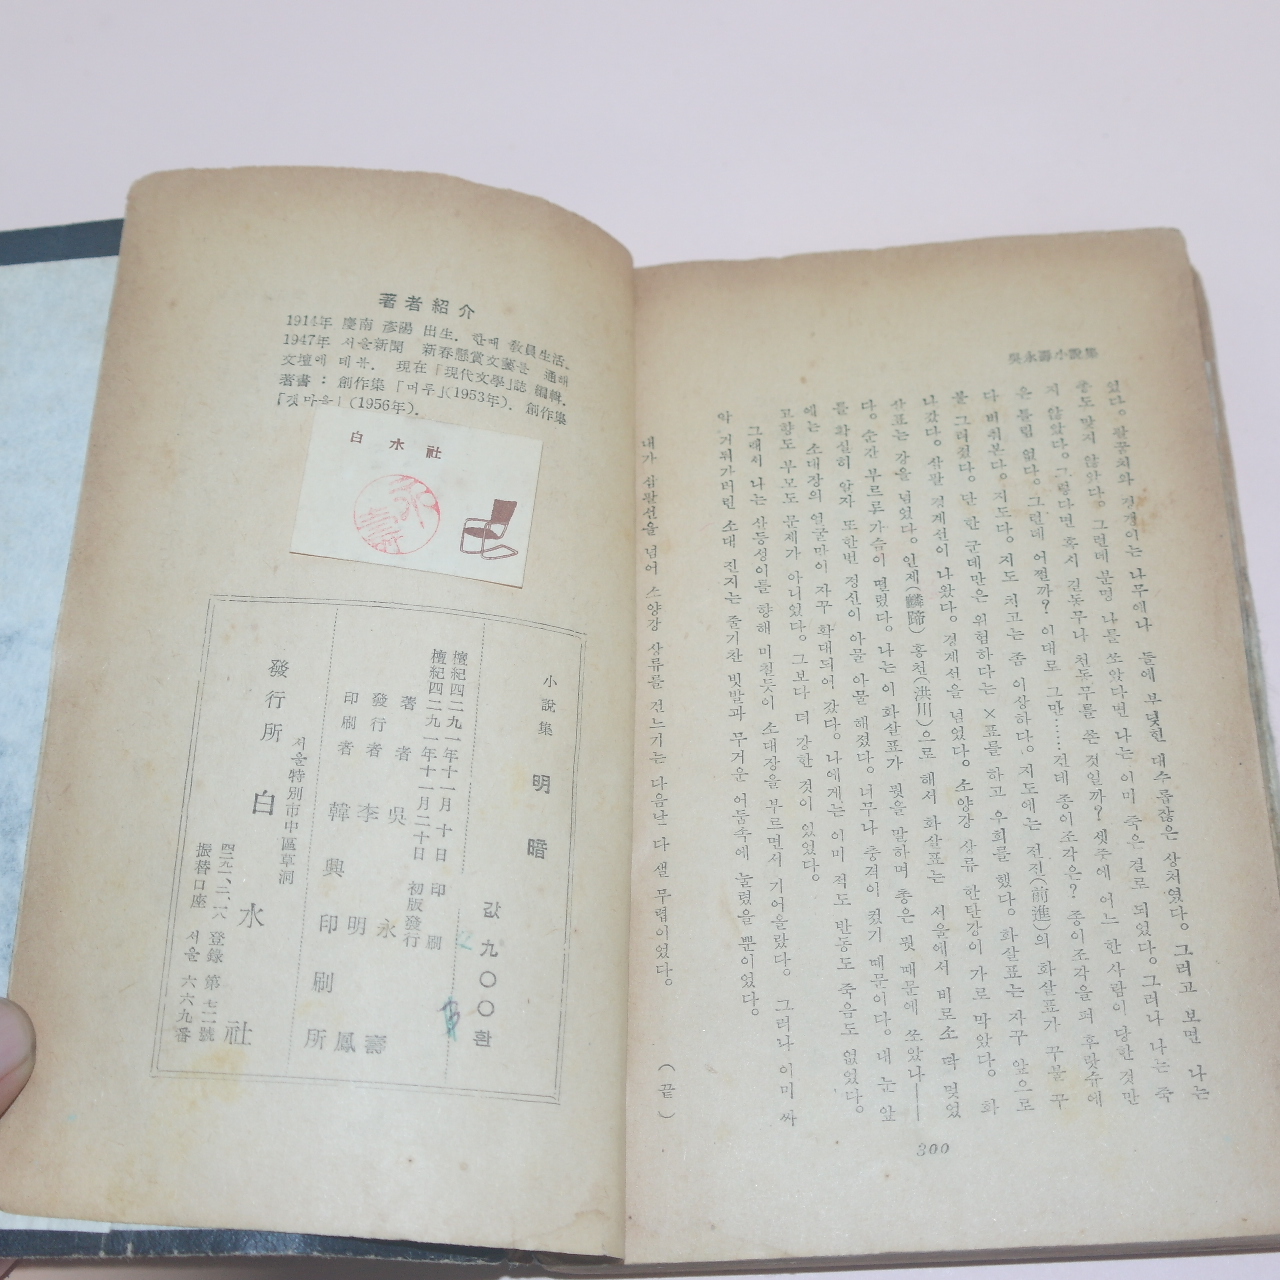 著者紹介
1914年 慶南 彦陽 出生. 한때 敎員生活.
1947年 서울新聞 新春懸賞文藝를 通해
文壇에 데뷰. 現在「現代文學」誌 編輯.
著書 : 創作集「머루」(1953年). 創作集
「갯마을」(1956年).
白水社
小說集 明暗 값 九〇〇환
檀紀四二九一年十一月 十日 印刷
檀紀四二九一年十一月二十日 初版發行
著者 吳永壽
發行者 李明鳳
印刷者 韓興印刷所
發行所 白水社
서울特別市中區草洞
四二九一、二、二六 登錄 第七二號
振替口座 서울 六六九番
吳永壽小說集
있다。팔꿈치와 정갱이는 나무에나 돌에 부딪힌 대수롭잖은 상처였다。그러고 보면 나는
총도 맞지 않았다。그런데 분명 나를 쏘았다면 나는 이미 죽은걸로 되었다。그러나 나는 죽
지 않았다。그렇다면 혹시 길동무나 천동무를 쏜 것일까? 셋중에 어느 한사람이 당한것만
은 틀림 없다。그런데 어쩔까? 이대로 그만……건데 종이조각은? 종이조각을 펴 후랏슈에
다 비춰본다。지도다。지도 치고는 좀 이상하다。지도에는 전진(前進)의 화살표가 꾸불 꾸
불 그려졌다。단 한 군데만은 위험하다는 ×표를 하고 우회를 했다。화살표는 자꾸 앞으로
나갔다。삼팔 경계선이 나왔다。경계선을 넘었다。소양강 상류 한탄강이 가로 막았다。화
살표는 강을 넘었다。인제(麟蹄) 홍천(洪川)으로 해서 화살표는 서울에서 비로소 딱 멎었
다。순간 부르루 가슴이 떨렸다。나는 이 화살표가 뭣을 말하며 총은 뭣 때문에 쏘았나——
를 확실히 알자 또한번 정신이 아물 아물 해졌다。너무나 충격이 컸기 때문이다。내 눈 앞
에는 소대장의 얼굴만이 자꾸 확대되어 갔다。나에게는 이미 적도 반동도 죽음도 없었다。
고향도 부모도 문제가 아니었다。그보다 더 강한 것이 있었다。
그래서 나는 산등성이를 향해 미칠듯이 소대장을 부르면서 기어올랐다。그러나 이미 싸
악 거둬가버린 소대 진지는 줄기찬 빗발과 무거운 어둠속에 눌렸을 뿐이었다。
내가 삼팔선을 넘어 소양강 상류를 건느기는 다음날 다 샐 무렵이었다。
(끝)
300